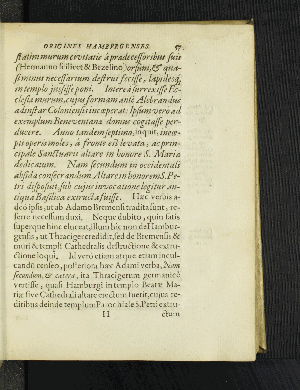 ORIGINES HAMBURGENSES. 57
statim murum civitatis à prædecessoribus suis
(Hermanno scilicet & Bezelino) orsum, & quasi
minus necessarium destrui fecisse, lapidesq,
in templo jussisse poni. Interea surrexisse Ec-
clesia murum, cujus formam ante Alebrandus
ad instar Coloniensis inceperat. Ipsum vero ad
exemplum Beneventanæ domus cogitasse per-
ducere. Anno tandem septimo, inquit, incœ-
pti operis moles, à fronte est levata, ac prin-
cipale Sanctuarii altare in honore S. Mariæ
dedicatum. Nam secundum in occidentali
absida consecrandum Altare in honorem S. Pe-
tri disposuit, sub cujus invocatione legitur an-
tiqua Basilica extructa fuisse. Hæc verba a-
deò ipsis, ut ab Adamo Bremensi tradita sunt, re-
ferre necessum duxi. Neque dubito, quin satis
superque hinc eluceat, illum hic non de Hambur-
gensi, ut Thraciger credidit, sed de Bremensis &
muri & templi Cathedralis destructione & exstru-
ctione loqui. Id verò etiam atque etiam incul-
candi censeo, posteriora hæc Adami verba, Nam
secundum, & cætera, ita Thracigerum permovisse
vertisse, quasi Hamburgi in templo Beatæ Ma-
riæ sive Cathedrali altare erectum fuerit, cujus re-
ditibus deinde templum Parochiale S. Petri extru-
H ctum